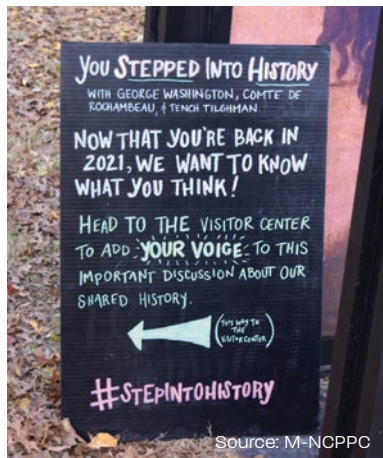 YOU STEPPED INTO HISTORY
WITH GEORGE WASHINGTON, COMTE DE
ROCHAMBEAU, & TENCH TILGHMAN.
NOW THAT YOU'RE BACK IN
2021, WE WANT TO KNOW
WHAT YOU THINK!
HEAD TO THE VISITOR CENTER
TO ADD YOUR VOICE TO THIS
IMPORTANT DISCUSSION ABOUT OUR
SHARED HISTORY.
(THIS WAY TO
THE
VISITOR CENTER)
#STEPINTOHISTORY
Source: M-NCPPC